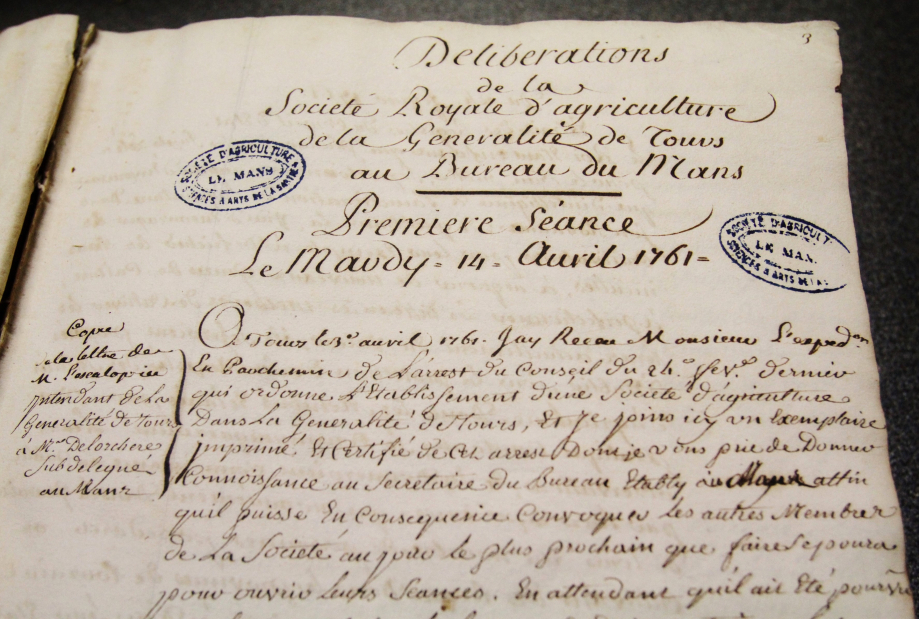 3
Deliberations
de la
Societé Royale d'agriculture
de la Generalité de Tours
au Bureau du Mans
SOCIÉTÉ D'AGRICULTURE
LE MANS
SCIENCES & ARTS DE LA SARTHE
Premiere Séance
SOCIÉTÉ D'AGRICULT
LE MAN.
SCIENCES & ARTS DE LA
Le Mardy = 14 = Avril 1761 =
Copie
de la lettre de
M. Lescalopier
intendant de La
Generalité de Tours
à Mr. Delorchere
Subdelegué
au Mans
A Tours le 3e. avril 1761. Jay Receu Monsieur L'expedon
En Parchemin de L'arrest du Conseil du 24e. fevr. dernier
qui ordonne L'Etablissement d'une Societé d'agriculture
Dans La Generalité de Tours, Et Je joins icy un Exemplaire
jmprimé Et Certifié de Cet arrest Dont je vous prie de Donner
Connoissance au Secretaire du Bureau Etably au Mans affin
qu'il puisse En Consequence Convoquer Les autres Membres
de La Societé au jour le plus prochain que faire Se poura
pour ouvrir Leurs Seances. En attendant qu'il ait Eté pourvu